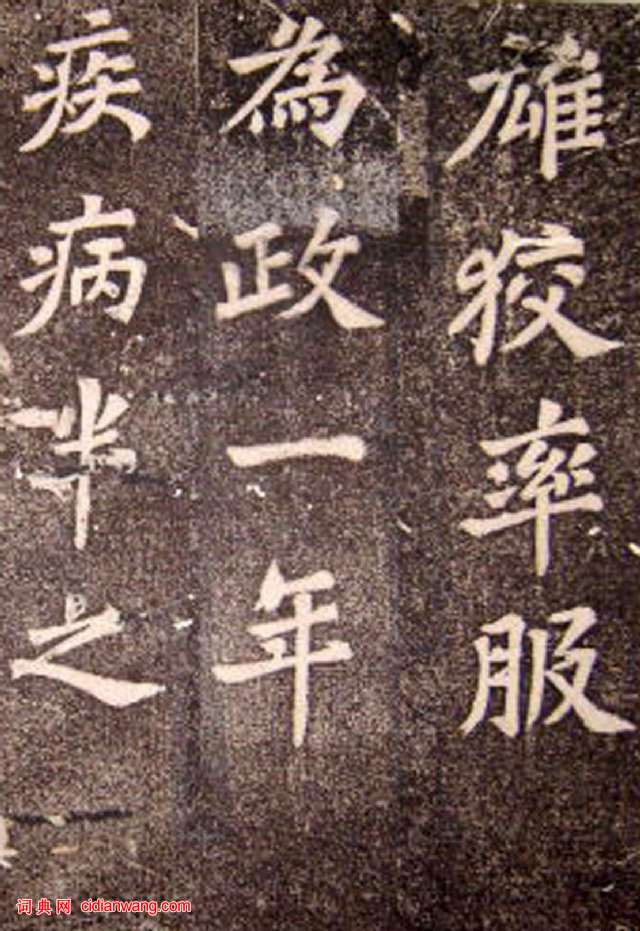 雄狡率服
為政一年
疾病半之
词典网 cidianwang.com